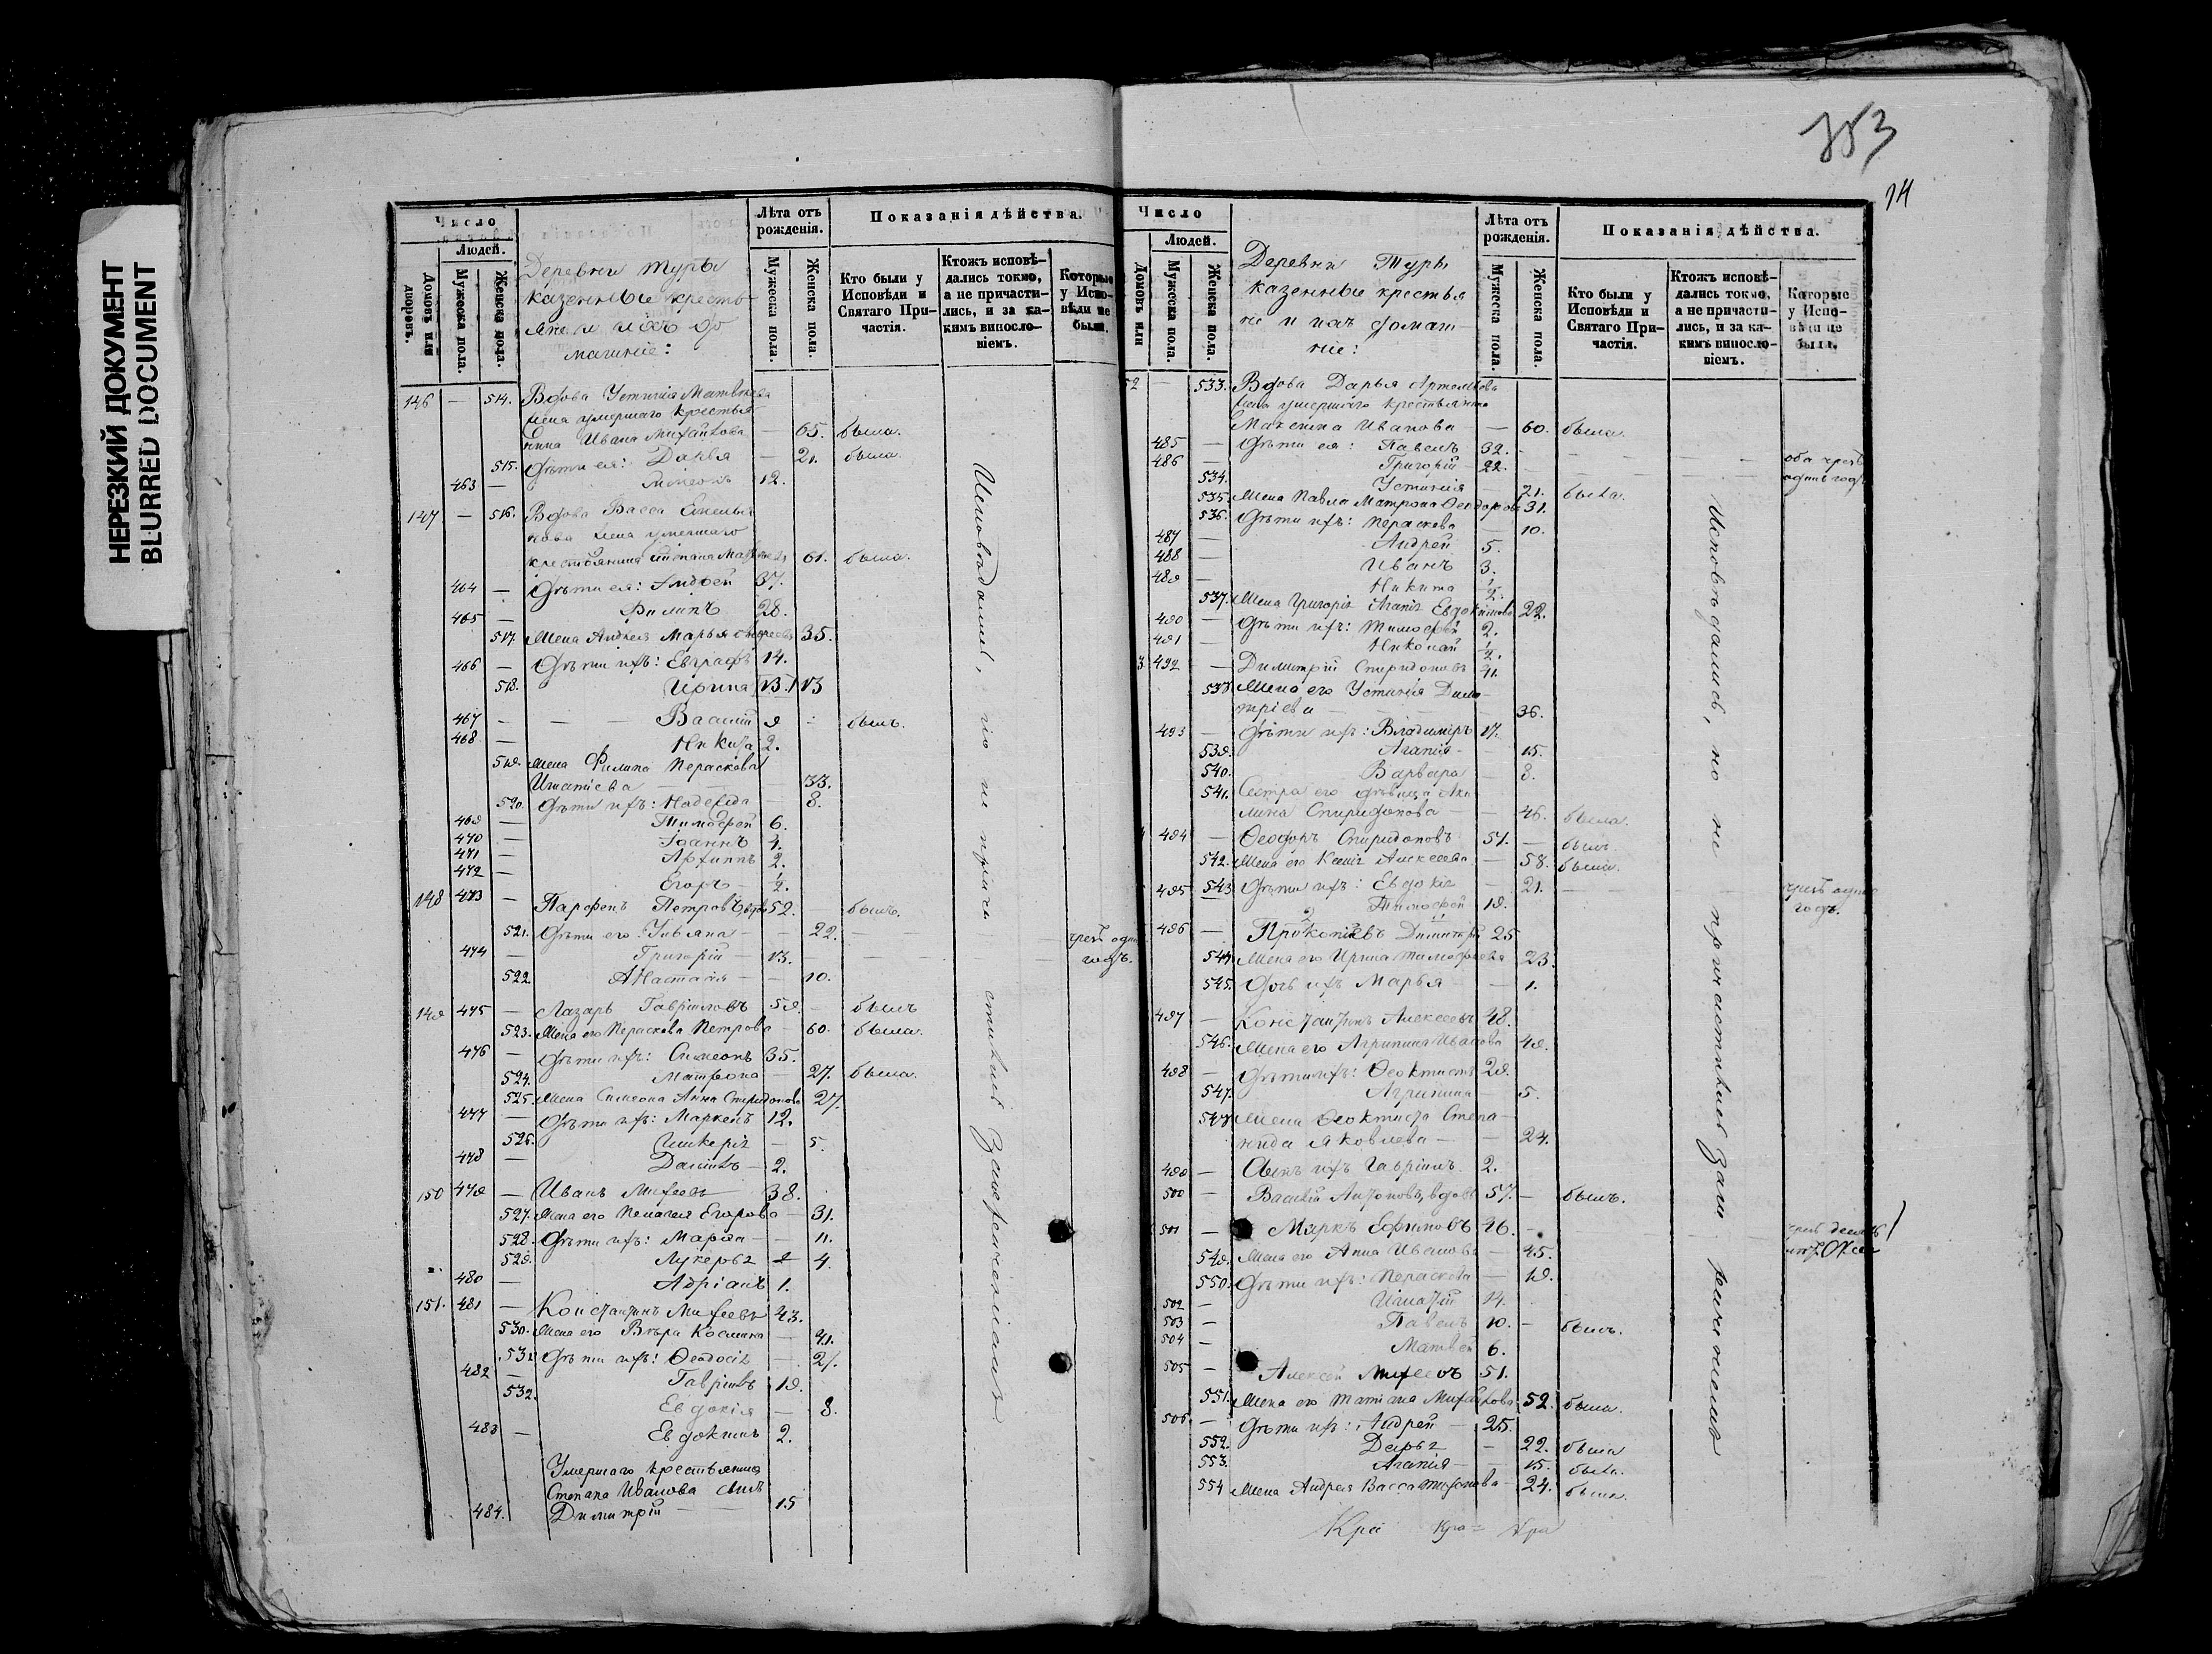 НЕРЕЗКИЙ ДОКУМЕНТ
BLURRED DOCUMENT
353
14
Число
Людей.
Домовъ или дворовъ.
Мужеска пола.
Женска пола.
Деревни Туры
казенные кресть-
яне и ихъ до
машніе:
Лѣта отъ рожденія.
Мужеска пола.
Женска пола.
Показанія дѣйства.
Кто были у Исповѣди и Святаго Причастія.
Ктожъ исповѣдались токмо, а не причастились, и за какимъ винословіемъ.
Которые у Исповѣди не были.
146 — 514. Вдова Устинія Матвѣева
жена умершаго крестья-
нина Ивана Михайлова — 65. была.
515. Дѣти ея: Дарья — 21. была.
463 — Симеонъ 12.
147 — 516. Вдова Васса Емелья
нова жена умершаго
крестьянина Степана Матвѣева 61. была.
464 — Дѣти ея: Андрей 37.
465 — Филипъ 28.
517. Жена Андрея Марья 35.
466 — Дѣти ихъ: Евграфъ 14.
518. Ирина 13
467 — Василій 9 былъ.
468 — Никита 2.
519. Жена Филипа Параскева
Игнатіева 33.
520. Дѣти ихъ: Надежда — 8.
469 — Тимофей 6.
470 — Іоаннъ 4.
471 — Архиппъ 2.
472 — Егоръ 1/2.
148 473 — Парфенъ Петровъ, вдовъ 52. былъ.
521. Дѣти его: Ульяна — 22. — чрезъ одинъ
474 — Григорій 13. — годъ.
522. Анастасія — 10.
149 475 — Лазарь Гавриловъ 59. — былъ
523. Жена его Параскева Петрова — 60. была.
476 — Дѣти ихъ: Симеонъ 35.
524. Матрона — 27. была.
525. Жена Симеона Анна Спиридонова 27.
477 — Дѣти ихъ: Маркелъ 12.
526. Гликерія — 5.
478 — Даніилъ 2.
150 479 — Иванъ Михеевъ 38.
527. Жена его Пелагея Егорова — 31.
528. Дѣти ихъ: Марѳа — 11.
529. Лукерья 4.
480 — Адріанъ 1.
151. 481 — Константинъ Михеевъ 43.
530. Жена его Вѣра Космина — 41.
531 Дѣти ихъ: Ѳеодосія — 21.
482 — Гавріилъ 19.
532. Евдокія — 8.
483 — Евдокимъ 2.
Умершаго крестьянина
Степана Иванова сынъ
484. Димитрій 15
Исповѣдались, но не причастились за нерачениемъ
Число
Людей.
Домовъ или
Мужеска пола.
Женска пола.
Деревни Туры
казенные крестья
не и ихъ домаш-
ніе:
Лѣта отъ рожденія.
Мужеска пола.
Женска пола.
Показанія дѣйства.
Кто были у Исповѣди и Святаго Причастія.
Ктожъ исповѣдались токмо, а не причастились, и за какимъ винословіемъ.
Которые у Исповѣди не были.
52 — 533. Вдова Дарья Артемьева
жена умершаго крестьянина
Максима Иванова — 60. была.
485 — Дѣти ея: Павелъ 32. — оба чрезъ
486 — Григорій 22. — одинъ годъ.
534. Устинія — 21. была.
535. Жена Павла Матрона Ѳеодорова 31.
536. Дѣти ихъ: Параскева — 10.
487 — Андрей 5.
488 — Иванъ 3.
489 — Никита 1/2.
537. Жена Григорія Агапія Евдокимова 22.
490 — Дѣти ихъ: Тимофей 2.
491 — Николай 1/2.
3 492 — Димитрій Спиридоновъ 41.
538 Жена его Устинія Дими-
тріева — 36.
493 — Дѣти ихъ: Владиміръ 17.
539. Агапія — 15.
540. Варвара — 8.
541. Сестра его дѣвица Аки
лина Спиридонова — 46. была.
494 — Ѳеодоръ Спиридоновъ 51. — былъ.
542. Жена его Ксенія Алексеева — 58. была.
543 Дѣти ихъ: Евдокія — 21. — чрезъ одинъ
495 Тимофей 19. годъ.
496 — Прокопіевъ Димитрій 25
544. Жена его Ирина Тимофеева 23.
545. Дочь ихъ Марья — 1.
497 — Константинъ Алексеевъ 48.
546. Жена его Агрипина Иванова 49.
498 — Дѣти ихъ: Ѳеоктистъ 29.
547. Агрипина — 5.
548 Жена Ѳеоктиста Степа-
нида Яковлева — 24.
499 — Сынъ ихъ Гавріилъ 2.
500 — Василій Антоновъ, вдовъ 57. — былъ.
501 — Маркъ Ефимовъ 46. — чрезъ десять
549. Жена его Анна Иванова — 45.
550. Дѣти ихъ: Параскева — 19.
502 — Игнатій 14.
503 — Павелъ 10. — былъ.
504 — Матвей 6.
505 — Алексей Михеевъ 51.
551. Жена его Татіана Михайлова 52. была.
506. — Дѣти ихъ: Андрей — 25.
552. Дарья — 22. была
553. Агапія — 15. была.
554 Жена Андрея Васса Тихонова — 24. была.
Исповѣдались, но не причастились за нерачениемъ